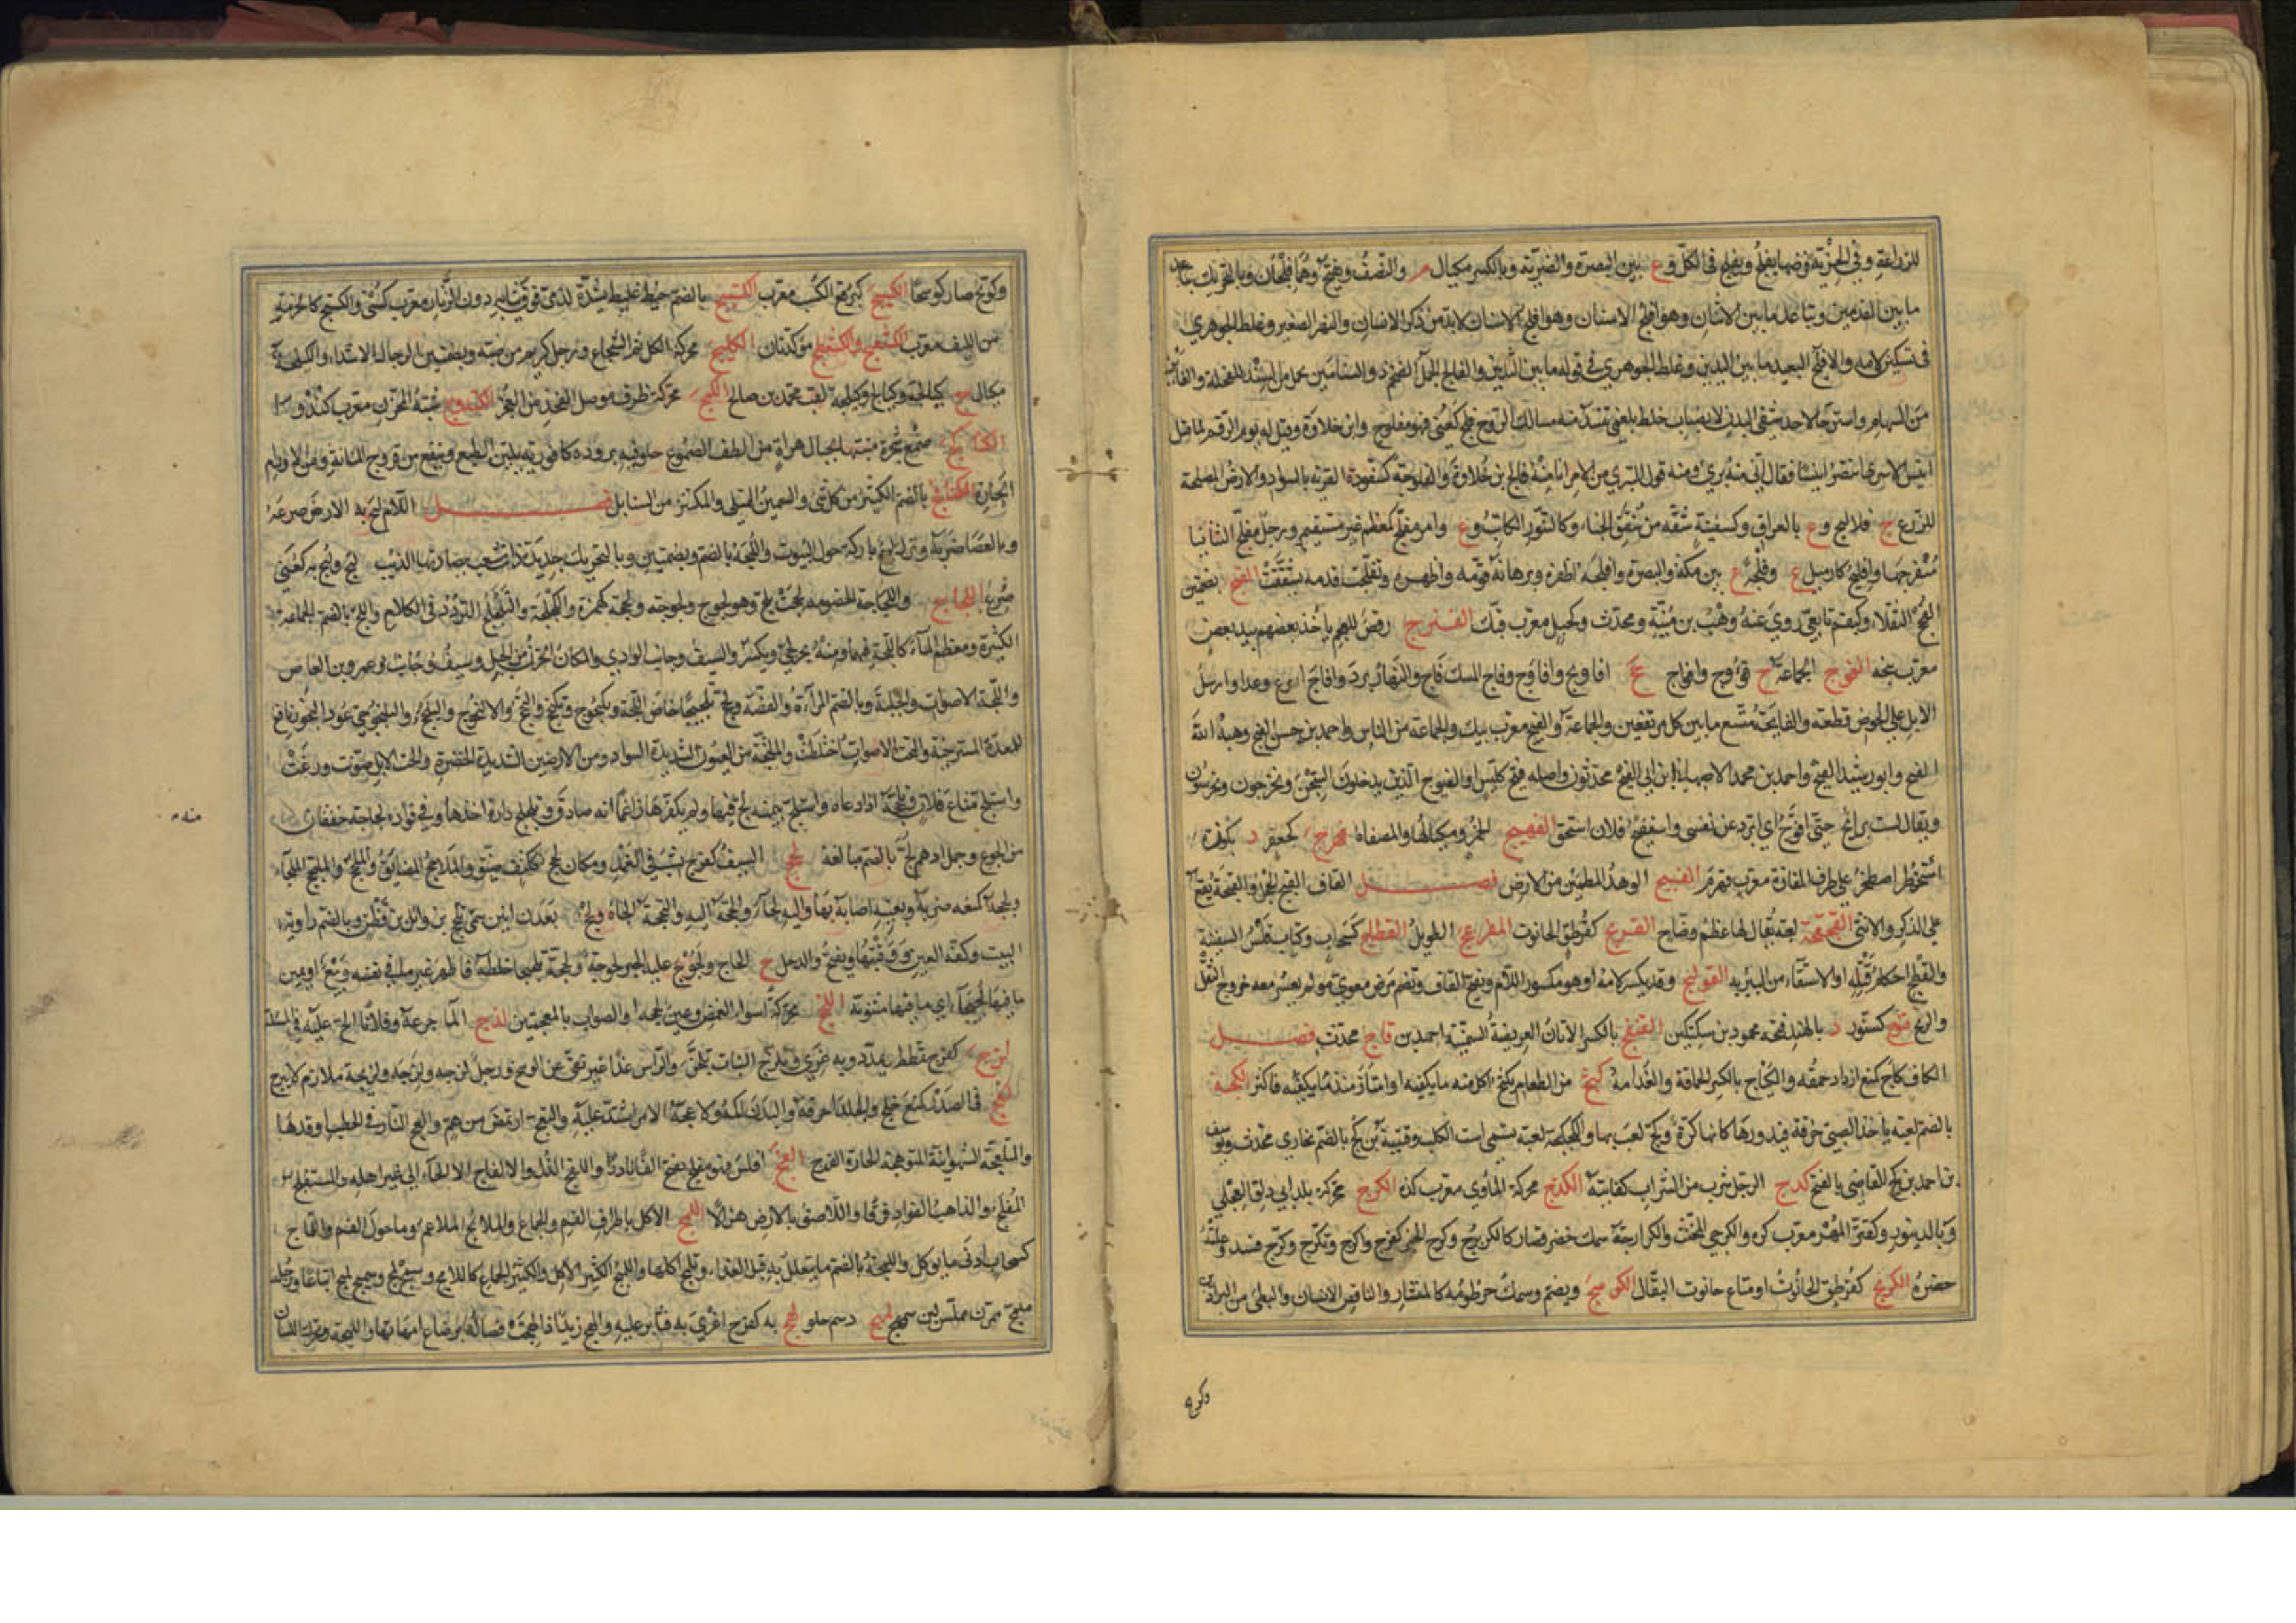 للزراعة وفى الجزية فرضها يفلج ويفلج فى الكل وع بين البصرة وضرية وبالكسر مكيال م والنصف ويفتح وهما فلجان وبالتحريك تباعد
ما بين القدمين وتباعد ما بين الاسنان وهو افلج الاسنان لابد من ذكر الاسنان والنهر الصغير وغلط الجوهري
فى تسكين لامه والافلج البعيد ما بين اليدين وغلط الجوهري فى قوله ما بين الثديين والفالج الجمل الضخم ذو السنامين يحمل من السند للفحلة والفائز
من السهام واسترخاء لاحد شقى البدن لانصباب خلط بلغمي تنسد منه مسالك الروح فلج كعني فهو مفلوج وابن خلاوة وقيل له يوم الرقم لما قتل
انيس الاسرى اتنصر انيسا فقال انى منه بريء ومنه قول المتبري من الامر انا منه فالج بن خلاوة والفلوجة كسفودة القرية بالسواد والارض المصلحة
للزرع ج فلاليج وع بالعراق وكسفينة شقة من شقق الخباء وكالتنور الكاتب وع وامر مفلج كمعظم غير مستقيم ورجل مفلج الثنايا
منفرجها وافليج كازميل ع وفلجة ع بين مكة والبصرة وافلجه اظفره وبرهانه قومه واظهره وتفلجت قدمه تشققت الفنج بضمتين
الفجج الثقلاء وكبقم تابعي روي عنه وهب بن منبه ومحدث وكجبل معرب فنك الفنزج رقص للعجم ياخذ بعضهم بيد بعض
معرب بنجه الفوج الجماعة ج فؤوج وافواج جج افاوج وافاويج وفاج المسك فاح والنهار برد وافاج اسرع وعدا وارسل
الابل على الحوض قطعة والفايجة متسع ما بين كل مرتفعين والجماعة والفيج معرب بيك والجماعة من الناس واحمد بن حسن الفيج وهبة الله
الفيج وابو رشيد الفيج واحمد بن محمد الاصبهاني ابن ابي الفيج محدثون واصله فيج ككيس او الفيوج الذين يدخلون السجن ويخرجون ويحرسون
ويقال لست برائح حتى افوج اي ابرد عن نفسى واستفيج فلان استحق الفيهج الخمر ومكيالها والمصفاة فهرج كجعفر د بكورة
اصطخر على طرف المفازة معرب فهره الفيج الوهد المطمئن من الارض فصل القاف القبج الحجل والقبجة تقع
على الذكر والانثى القجقجة لعبة يقال لها عظم وضاح القربج كقرطق الحانوت المقرعج الطويل القطاج كسحاب وكتاب قلس السفينة
والقطج احكام فتله او الاستقاء من البئر به القولنج وقد يكسر لامه او هو مكسور اللام ويفتح القاف وتضم مرض معوي مؤلم يعسر معه خروج الثفل
والريح قنوج كسنور د بالهند فتحه محمود بن سبكتكين القنفج بالكسر الاتان العريضة السمينة احمد بن قاج محدث فصل
الكاف كاج كمنع ازداد حمقه والكئاج بالكسر الحماقة والفدامة كثج من الطعام يكثج اكل منه ما يكفيه او امتاز منه ما يكفيه فاكثر الكجة
بالضم لعبة ياخذ الصبي خرقة فيدورها كانها كرة وكج لعب بها والكجكجة لعبة تسمى است الكلبة وقتيبة بن كج بالضم بخاري محدث ويوسف
بن احمد بن كج القاضى بالفتح كدج الرجل شرب من الشراب كفايته الكذج محركة المأوي معرب كذه الكرج محركة بلد ابي دلف العجلي
وة بالدينور وكقبر المهر معرب كره والكرجي المخنث والكرارجة سمك خضر قصار كالكريرج وكرج الخبز كفرح واكرج وتكرج وكرج فسد وعلته
خضرة الكربج كقرطق الحانوت او متاع حانوت البقال الكوسج ويضم وسمك خرطومه كالمنشار والناقص الاسنان والبطئ من البراذين
وكوسج
وكوسج صار كوسجا الكسبج كبرقع الكسب معرب الكستيج بالضم خيط غليظ يشده الذمي فوق ثيابه دون الزنار معرب كستى والكستج كالحزمة
من الليف معرب الكشعثج والكشعظج مولدتان الكلج محركة الكلج الشجاع ورجل كريم من ضبة وبضمتين الرجال الاشداء والكيلجة
مكيال ج كيالجة وكيالج وكيلجة لقب محمد بن صالح الكمج محركة طرف موصل الفخذ من العجز الكندوج شبه المخزن معرب كندو
صمغ شجرة منبتها بجبال هراة من الطف الصموغ حلو فيه برودة كافورية يلين الطبع وينفع من قروح المثانة ومن الاورام
الحارة الكنافج بالضم الكثير من كل شيء والسمين الممتلى والمكتنز من السنابل فصل اللام لبج به الارض صرعه
وبالعصا ضربه وبرك لبيج باركة حول البيوت واللبجة بالضم وبضمتين وبالتحريك حديدة ذات شعب يصاد بها الذئب لبج ولبج به كعني
صرع اللجاج واللجاجة الخصومة لججت تلج وهو لجوج ولجوجة ولججة كهمزة واللجلجة والتلجلج التردد فى الكلام واللج بالضم الجماعة
الكثيرة ومعظم الماء كاللجة فيهما ومنه بحر لجي ويكسر والسيف وجانب الوادي والمكان الحزن من الجبل وسيف عمرو بن العاص
واللجة الاصوات والجلبة وبالضم المرآة والفضة ولجج تلجيجا خاض اللجة ويلنجوج ويلنجج والنجج والالنجوج واليلنجج واليلنجوجي عود البخور نافع
للمعدة المسترخية والتجت الاصوات اختلطت والملتجة من العيون الشديدة السواد ومن الارضين الشديدة الخضرة والجت الابل صوتت ورغت
واستلج متاع فلان وتلججه اذا ادعاه واستلج بيمينه لج فيها ولم يكفرها زاعما انه صادق وتلجلج داره اخذها وفى فؤاده لجاجة خفقان
منه
من الجوع وجمل ادهم لج بالضم مبالغة لحج السيف كفرح نشب فى الغمد ومكان لحج ككتف ضيق والملاحج المضايق والملحج الملجأ
ولحجه كمنعه ضربه وبعينه اصابه بها واليه لجأ والحجه اليه والتحجه الجأه ولحج بعدن ابين سمى بلحج بن وائل بن قطن وبالضم زاوية
البيت وكفة العين ووقبتها ويفتح والدحل ج الحاج ولحوج عليه الخبر لحوجة ولحجه تلحيجا خلطه فاظهر غير ما فى نفسه
ما فيها لحيجاء اي ما فيها مثنوية اللخج محركة اسوأ الغمص وعين لخجة او الصواب بالمعجمتين لذج الماء جرعه وفلانا الح عليه فى المسئلة
لزج كفرح تمطط وتمدد وبه غري وتلزج النبات تلجن والراس غدا غير نقي عن الوسخ ورجل لزجة ولزجة ولزيجة ملازم لا يبرح
لعج فى الصدر كمنع خلج والجلد احرقه والبدن آلمه ولاعجه الامر اشتد عليه والتعج ارتمض من هم والعج النار فى الحطب اوقدها
والمتلعجة الشهوانية المتوهجة الحارة الفرج الفج افلس فهو ملفج بفتح الفاء نادر واللفج الذل والالفاج الالجاء الى غير اهله والمستلفج
الملفج والذاهب الفؤاد فرقا واللاصق بالارض هزالا اللمج الاكل باطراف الفم والجماع والملامج الملاغم وما حول الفم والماج
كسحاب ادنى ما يؤكل واللمجة بالضم ما يتعلل به قبل الغداء وتلمج اكلها واللمج الكثير الاكل والكثير الجماع كاللامج وسمج لمج وسميج لميج اتباعا ورجل
ملمج ممرن مملس لين سمهج لمهج دسم حلو لهج به كفرح اغري به فثابر عليه والهج زيد اذا لهجت فصاله برضاع امهاتها واللهجة ويحرك اللسان